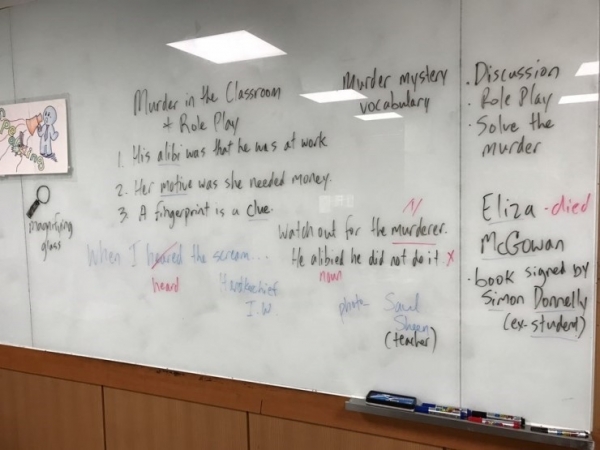 Murder in the Classroom
+ Role Play
1. His alibi was that he was at work
2. Her motive was she needed money.
3 A fingerprint is a clue.
magnifying
glass
When I heared the scream...
heard
Handkechief
I.W.
Murder mystery
vocabulary
N
Watch out for the murderer.
He alibied he did not do it x
noun
photo
(teacher)
· Discussion
· Role Play
· Solve the
murder
Eliza - died
McGowan
· book signed by
Simon Donnelly
(ex-student)